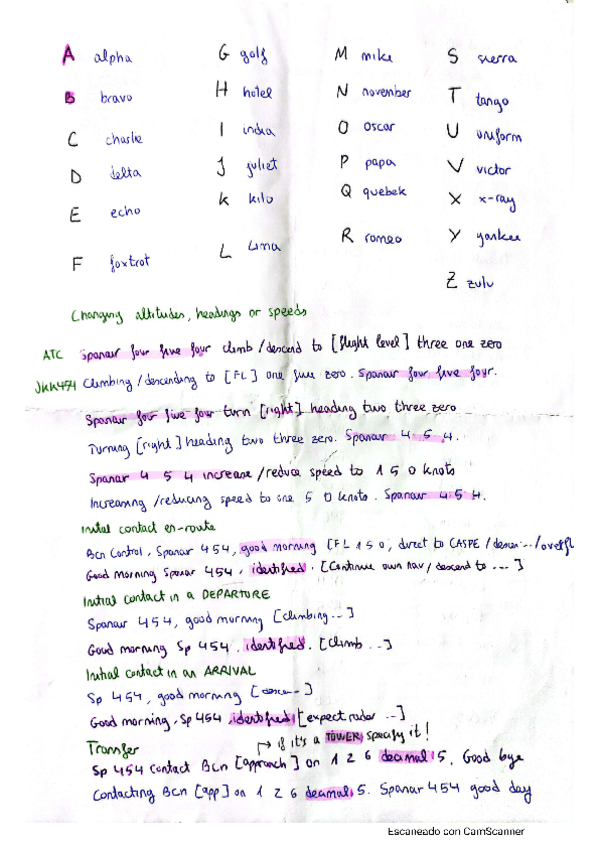 A alpha
B bravo
C charlie
D delta
E echo
F foxtrot
G golf
H hotel
I india
J juliet
K kilo
L Lima
M mike
N november
O oscar
P papa
Q quebek
R romeo
S sierra
T tango
U uniform
V victor
X x-ray
Y yankee
Z zulu
Changing altitudes, headings or speeds
ATC Spanair four five four climb/descend to [flight level] three one zero
JKK454 Climbing/descending to [FL] one five zero. Spanair four five four.
Spanair four five four turn [right] heading two three zero
Turning [right] heading two three zero. Spanair 4 5 4.
Spanair 4 5 4 increase/reduce speed to 1 5 0 knots
Increasing/reducing speed to one 5 0 knots. Spanair 4 5 4.
Initial contact en-route
Bcn Control, Spanair 454, good morning [FL 150, direct to CASPE/descen.../overfl
Good morning Spanair 454, identified. [Continue own nav/descend to ...]
Initial contact in a DEPARTURE
Spanair 454, good morning [climbing...]
Good morning Sp 454, identified. [Climb ..]
Initial contact in an ARRIVAL
Sp 454, good morning [descen...]
Good morning, Sp 454 identified, [expect radar ..]
Transfer → if it's a TOWER, specify it!
Sp 454 contact Bcn [approach] on 1 2 6 decimal 5. Good bye
Contacting Bcn [app] on 1 2 6 decimal 5. Spanair 454 good day
Escaneado con CamScanner